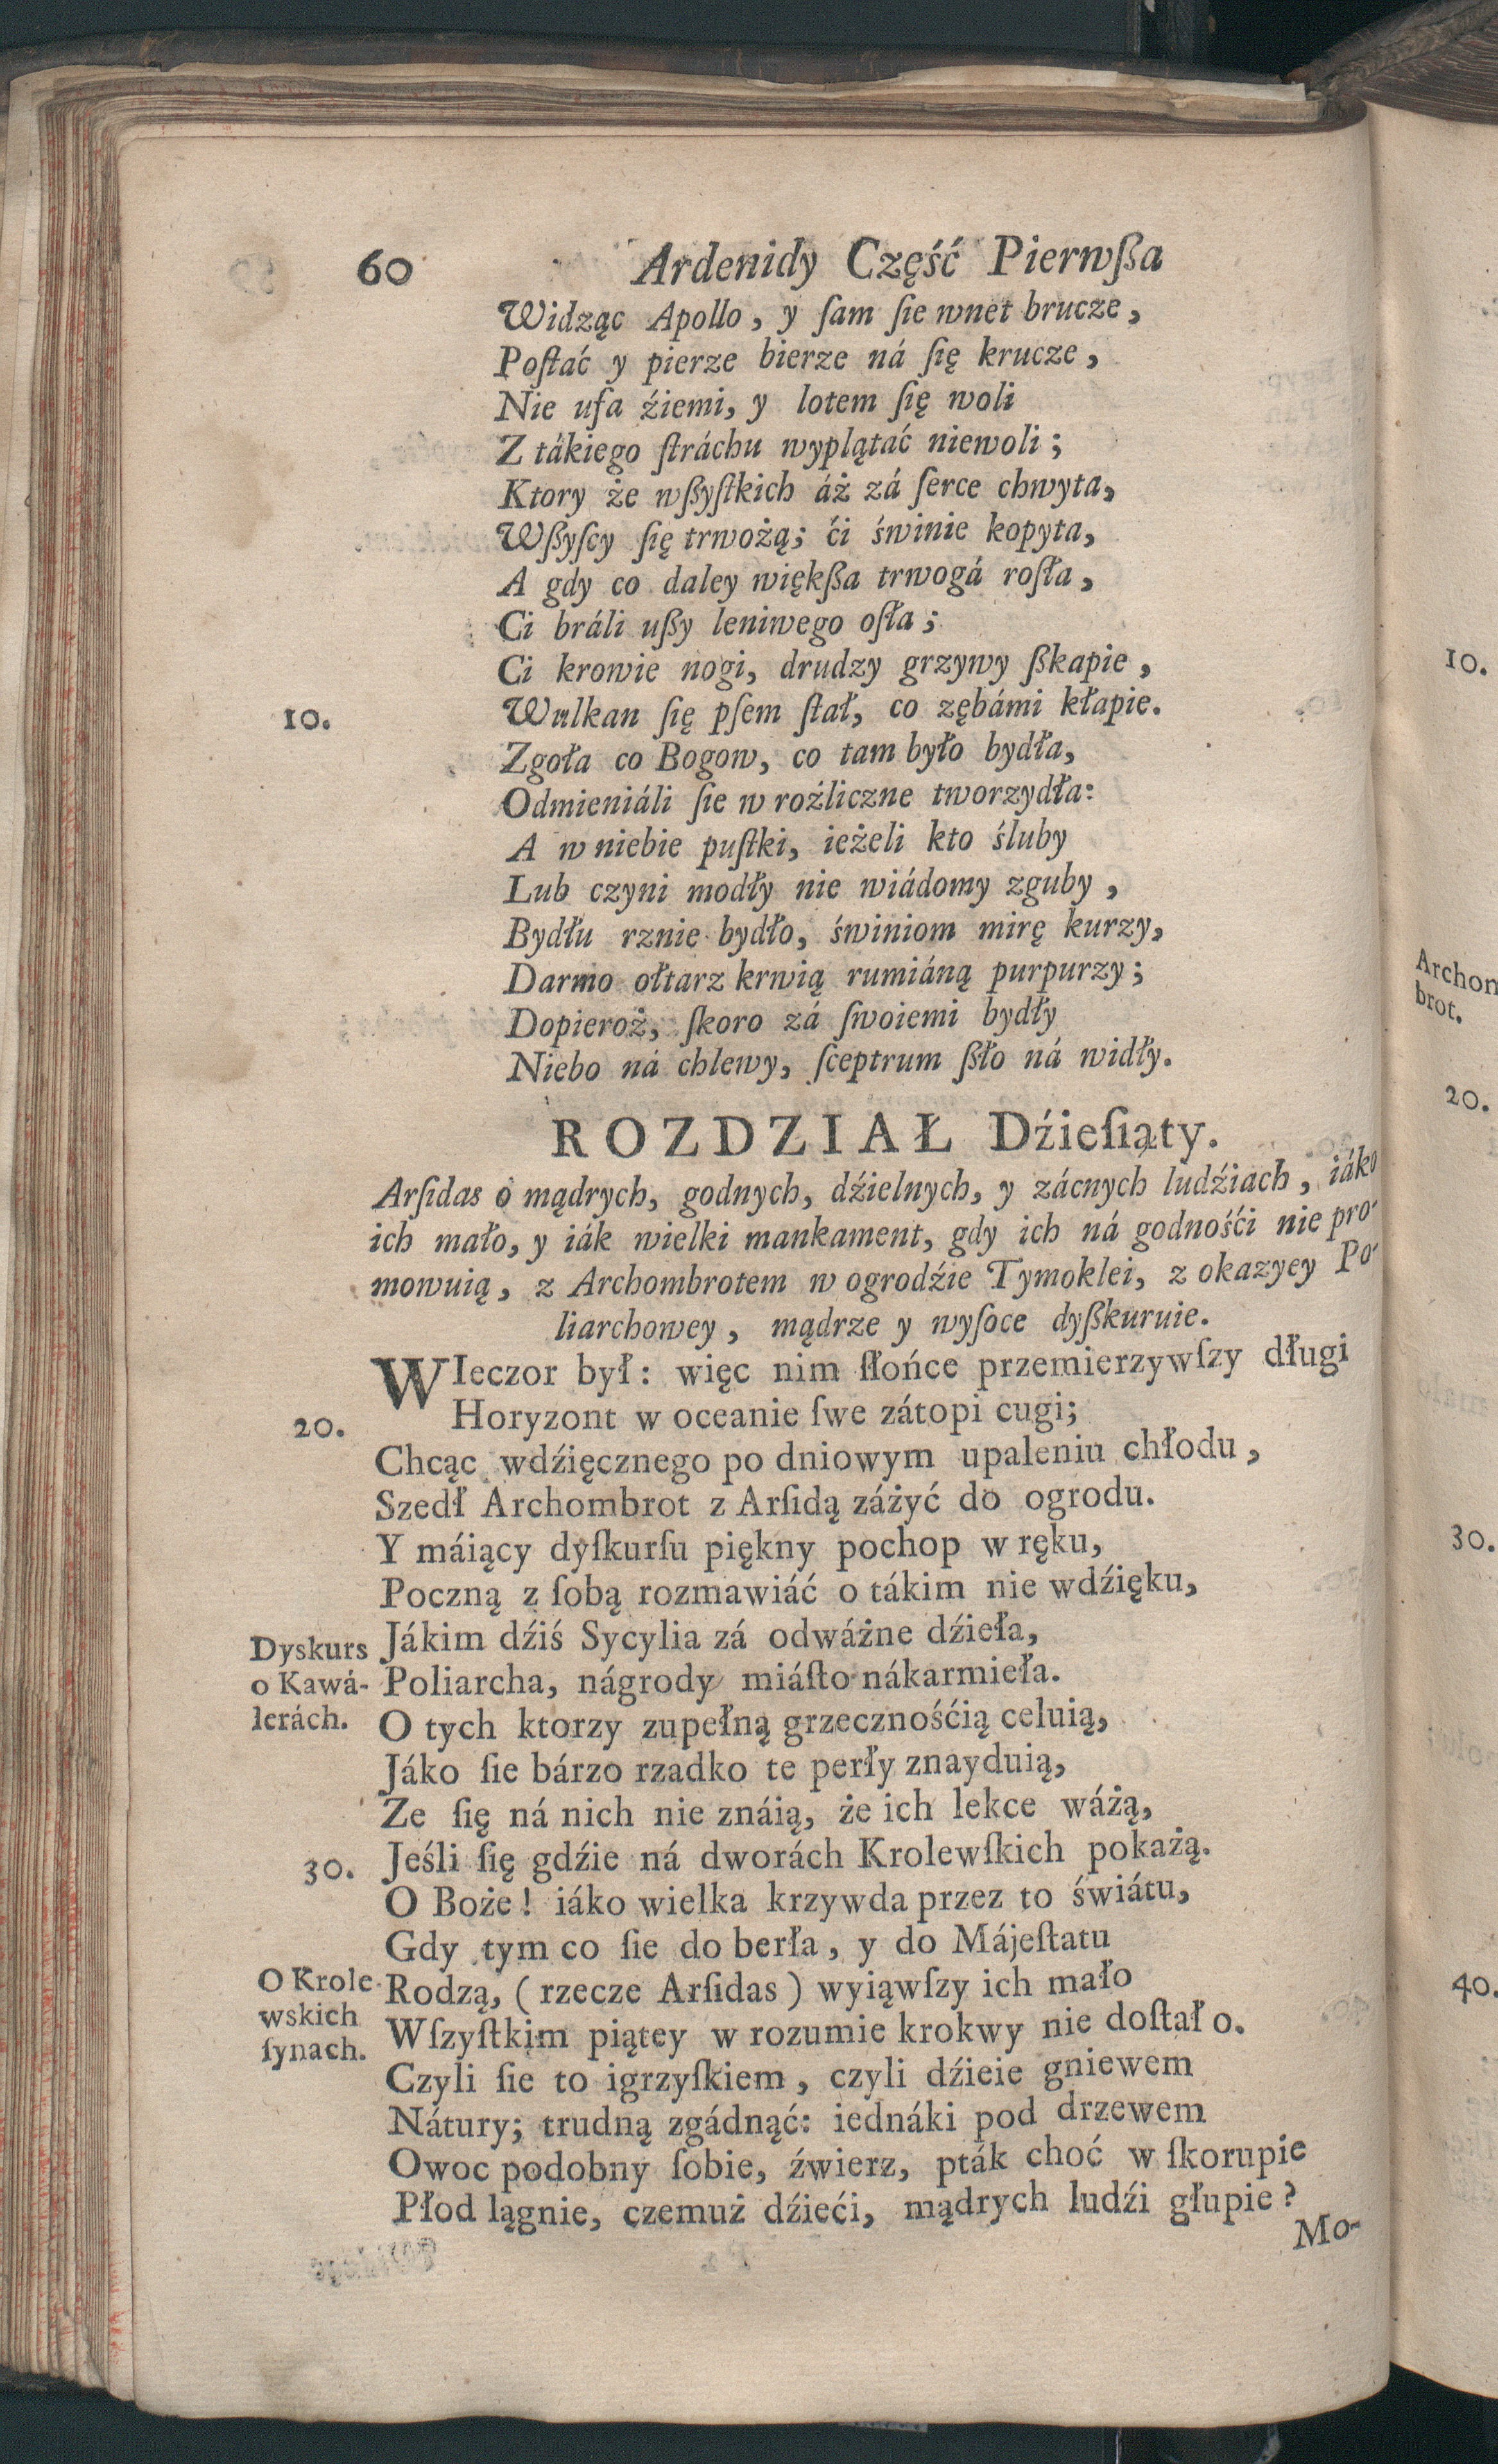 60 Ardenidy Część Pierwßa
Widząc Apollo, y ſam ſie wnet brucze,
Poſtać y pierze bierze ná ſię krucze,
Nie ufa źiemi, y lotem ſię woli
Z tákiego ſtráchu wyplątáć niewoli;
Ktory że wßyſtkich áż zá ſerce chwyta,
Wßyſcy ſię trwożą; ći świnie kopyta,
A gdy co daley więkßa trwogá roſła,
Ci bráli ußy leniwego oſła;
Ci krowie nogi, drudzy grzywy ßkapie,
10. Wulkan ſię pſem ſtał, co zębámi kłapie.
Zgoła co Bogow, co tam było bydła,
Odmieniáli ſie w roźliczne tworzydła:
A w niebie puſtki, ieżeli kto śluby
Lub czyni modły nie wiádomy zguby,
Bydłu rznie bydło, świniom mirę kurzy,
Darmo ołtarz krwią rumiáną purpurzy;
Dopieroż, ſkoro zá ſwoiemi bydły
Niebo ná chlewy, ſceptrum ßło ná widły.
ROZDZIAŁ Dźieſiąty.
Arſidas o mądrych, godnych, dźielnych, y zácnych ludźiach, iáko
ich mało, y iák wielki mankament, gdy ich ná godnośći nie pro-
mowuią, z Archombrotem w ogrodźie Tymoklei, z okazyey Po-
liarchowey, mądrze y wyſoce dyßkuruie.
WIeczor był: więc nim ſłońce przemierzywſzy długi
20. Horyzont w oceanie ſwe zátopi cugi;
Chcąc wdźięcznego po dniowym upaleniu chłodu,
Szedł Archombrot z Arſidą záżyć do ogrodu.
Y máiący dyſkurſu piękny pochop w ręku,
Poczną z ſobą rozmawiáć o tákim nie wdźięku,
Dyskurs Jákim dźiś Sycylia zá odważne dźieła,
o Kawá- Poliarcha, nágrody miáſto nákarmieła.
lerách. O tych ktorzy zupełną grzecznośćią celuią,
Jáko ſie bárzo rzadko te perły znayduią,
Ze ſię ná nich nie znáią, że ich lekce wáżą,
30. Jeśli ſię gdźie ná dworách Krolewſkich pokażą.
O Boże! iáko wielka krzywda przez to świátu,
Gdy tym co ſie do berła, y do Májeſtatu
O Krole- Rodzą, (rzecze Arſidas) wyiąwſzy ich mało
wskich Wſzyſtkim piątey w rozumie krokwy nie doſtał o.
ſynach. Czyli ſie to igrzyſkiem, czyli dźieie gniewem
Nátury; trudną zgádnąć: iednáki pod drzewem
Owoc podobny ſobie, źwierz, pták choć w ſkorupie
Płod lągnie, czemuż dźieći, mądrych ludźi głupie?
Mo-
10.
Archom
brot.
20.
30.
40.